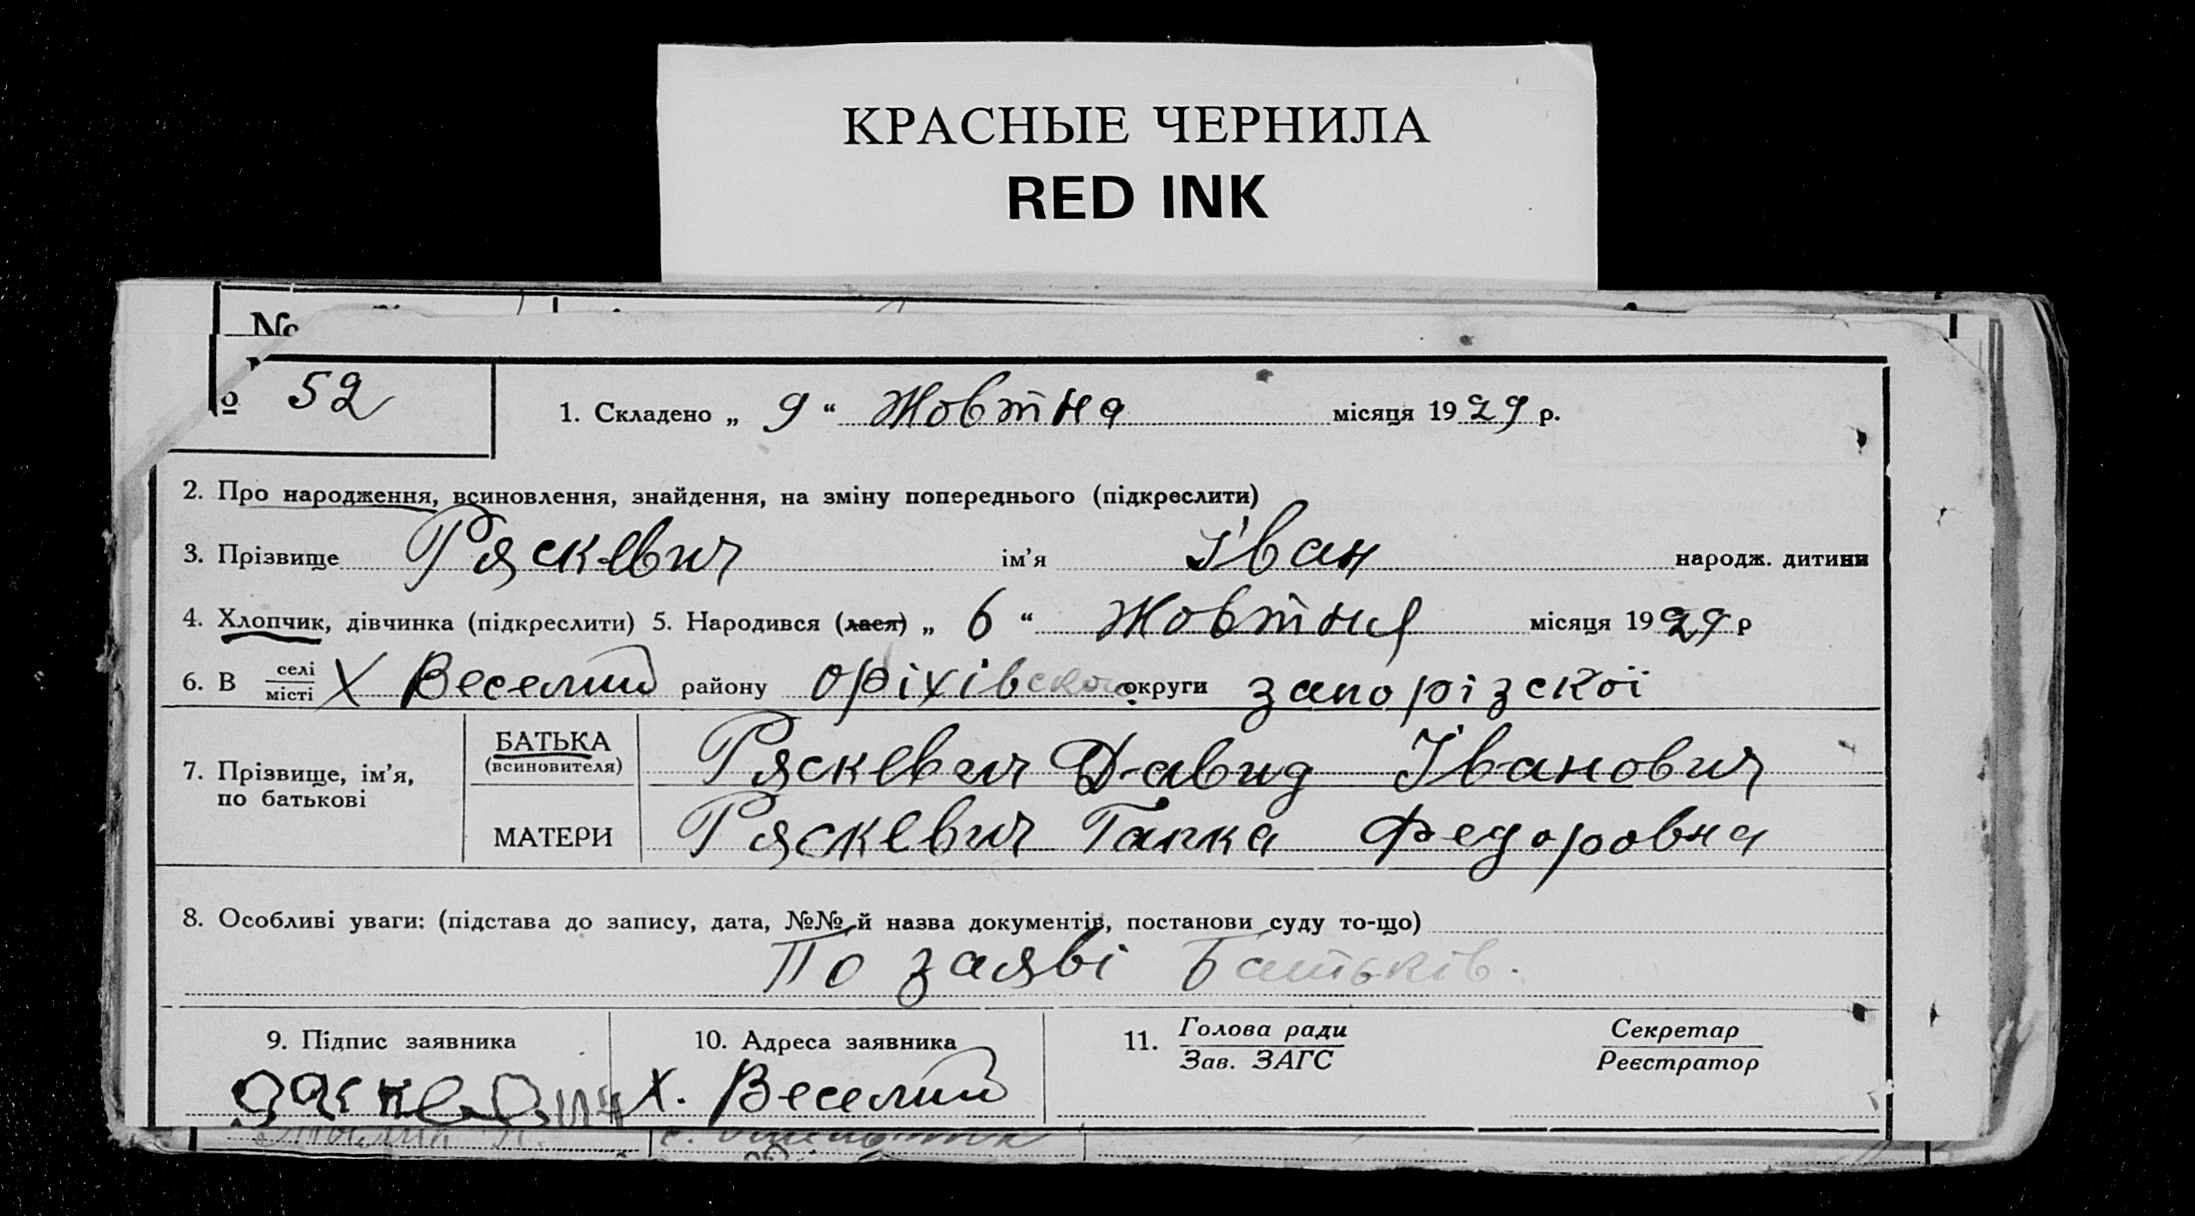 КРАСНЫЕ ЧЕРНИЛА
RED INK
№
№ 52
1. Складено „ 9 “ Жовтня місяця 1929 р.
2. Про народження, всиновлення, знайдення, на зміну попереднього (підкреслити)
3. Прізвище Ряскевич ім’я Іван народж. дитини
4. Хлопчик, дівчинка (підкреслити) 5. Народився (лася) „ 6 “ Жовтня місяця 1929 р
6. В селі місті Х Веселий району оріхівского округи запорізскої
7. Прізвище, ім’я, по батькові
БАТЬКА (всиновителя) Ряскевич Давид Іванович
МАТЕРИ Ряскевич Гапка Федоровна
8. Особливі уваги: (підстава до запису, дата, №№ й назва документів, постанови суду то-що)
По заяві Батьків.
9. Підпис заявника 10. Адреса заявника 11. Голова ради Зав. ЗАГС Секретар Реєстратор
Х. Веселий